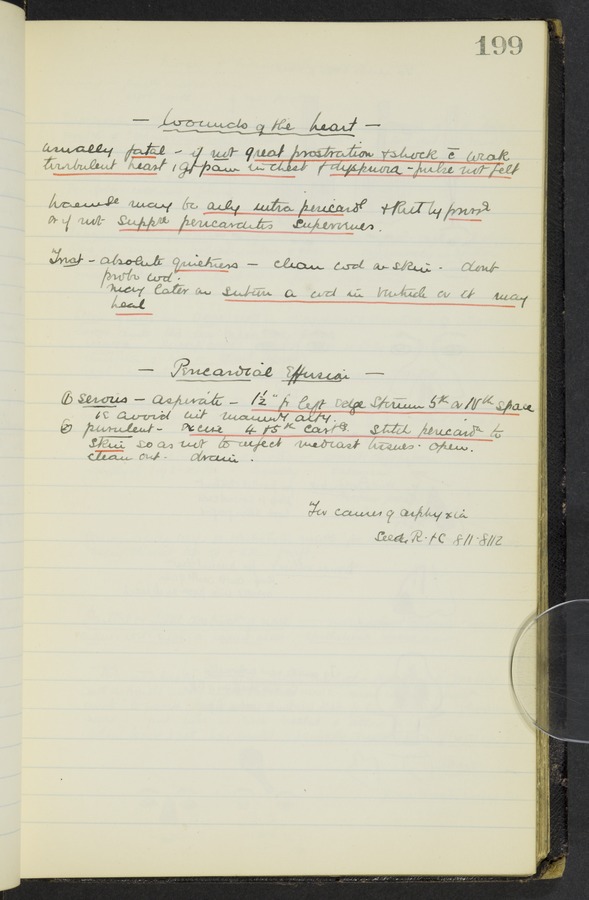 199
- Wounds of the heart -
usually fatal - if not great prostration & shock c̄ weak
turbulent heart, gt pain in chest & dyspnoea - pulse not felt
may be only intra pericardl & that by
or if not suppve pericarditis supervenes.
Treat - absolute quietness - clean wd or skin. dont
probe wd.
may later on suture a wd in ventricle or it may
heal
- Pericardial Effusion -
① Serous - aspirate - 1½" fr left edge Sternum 5th or IVth space
to avoid int mammy arty.
② purulent - excise 4 & 5th cartge stitch pericardm to
Skin so as not to infect mediast tissues. open.
clean out. drain.
For causes of asphyxia
see R. & C 811-8112